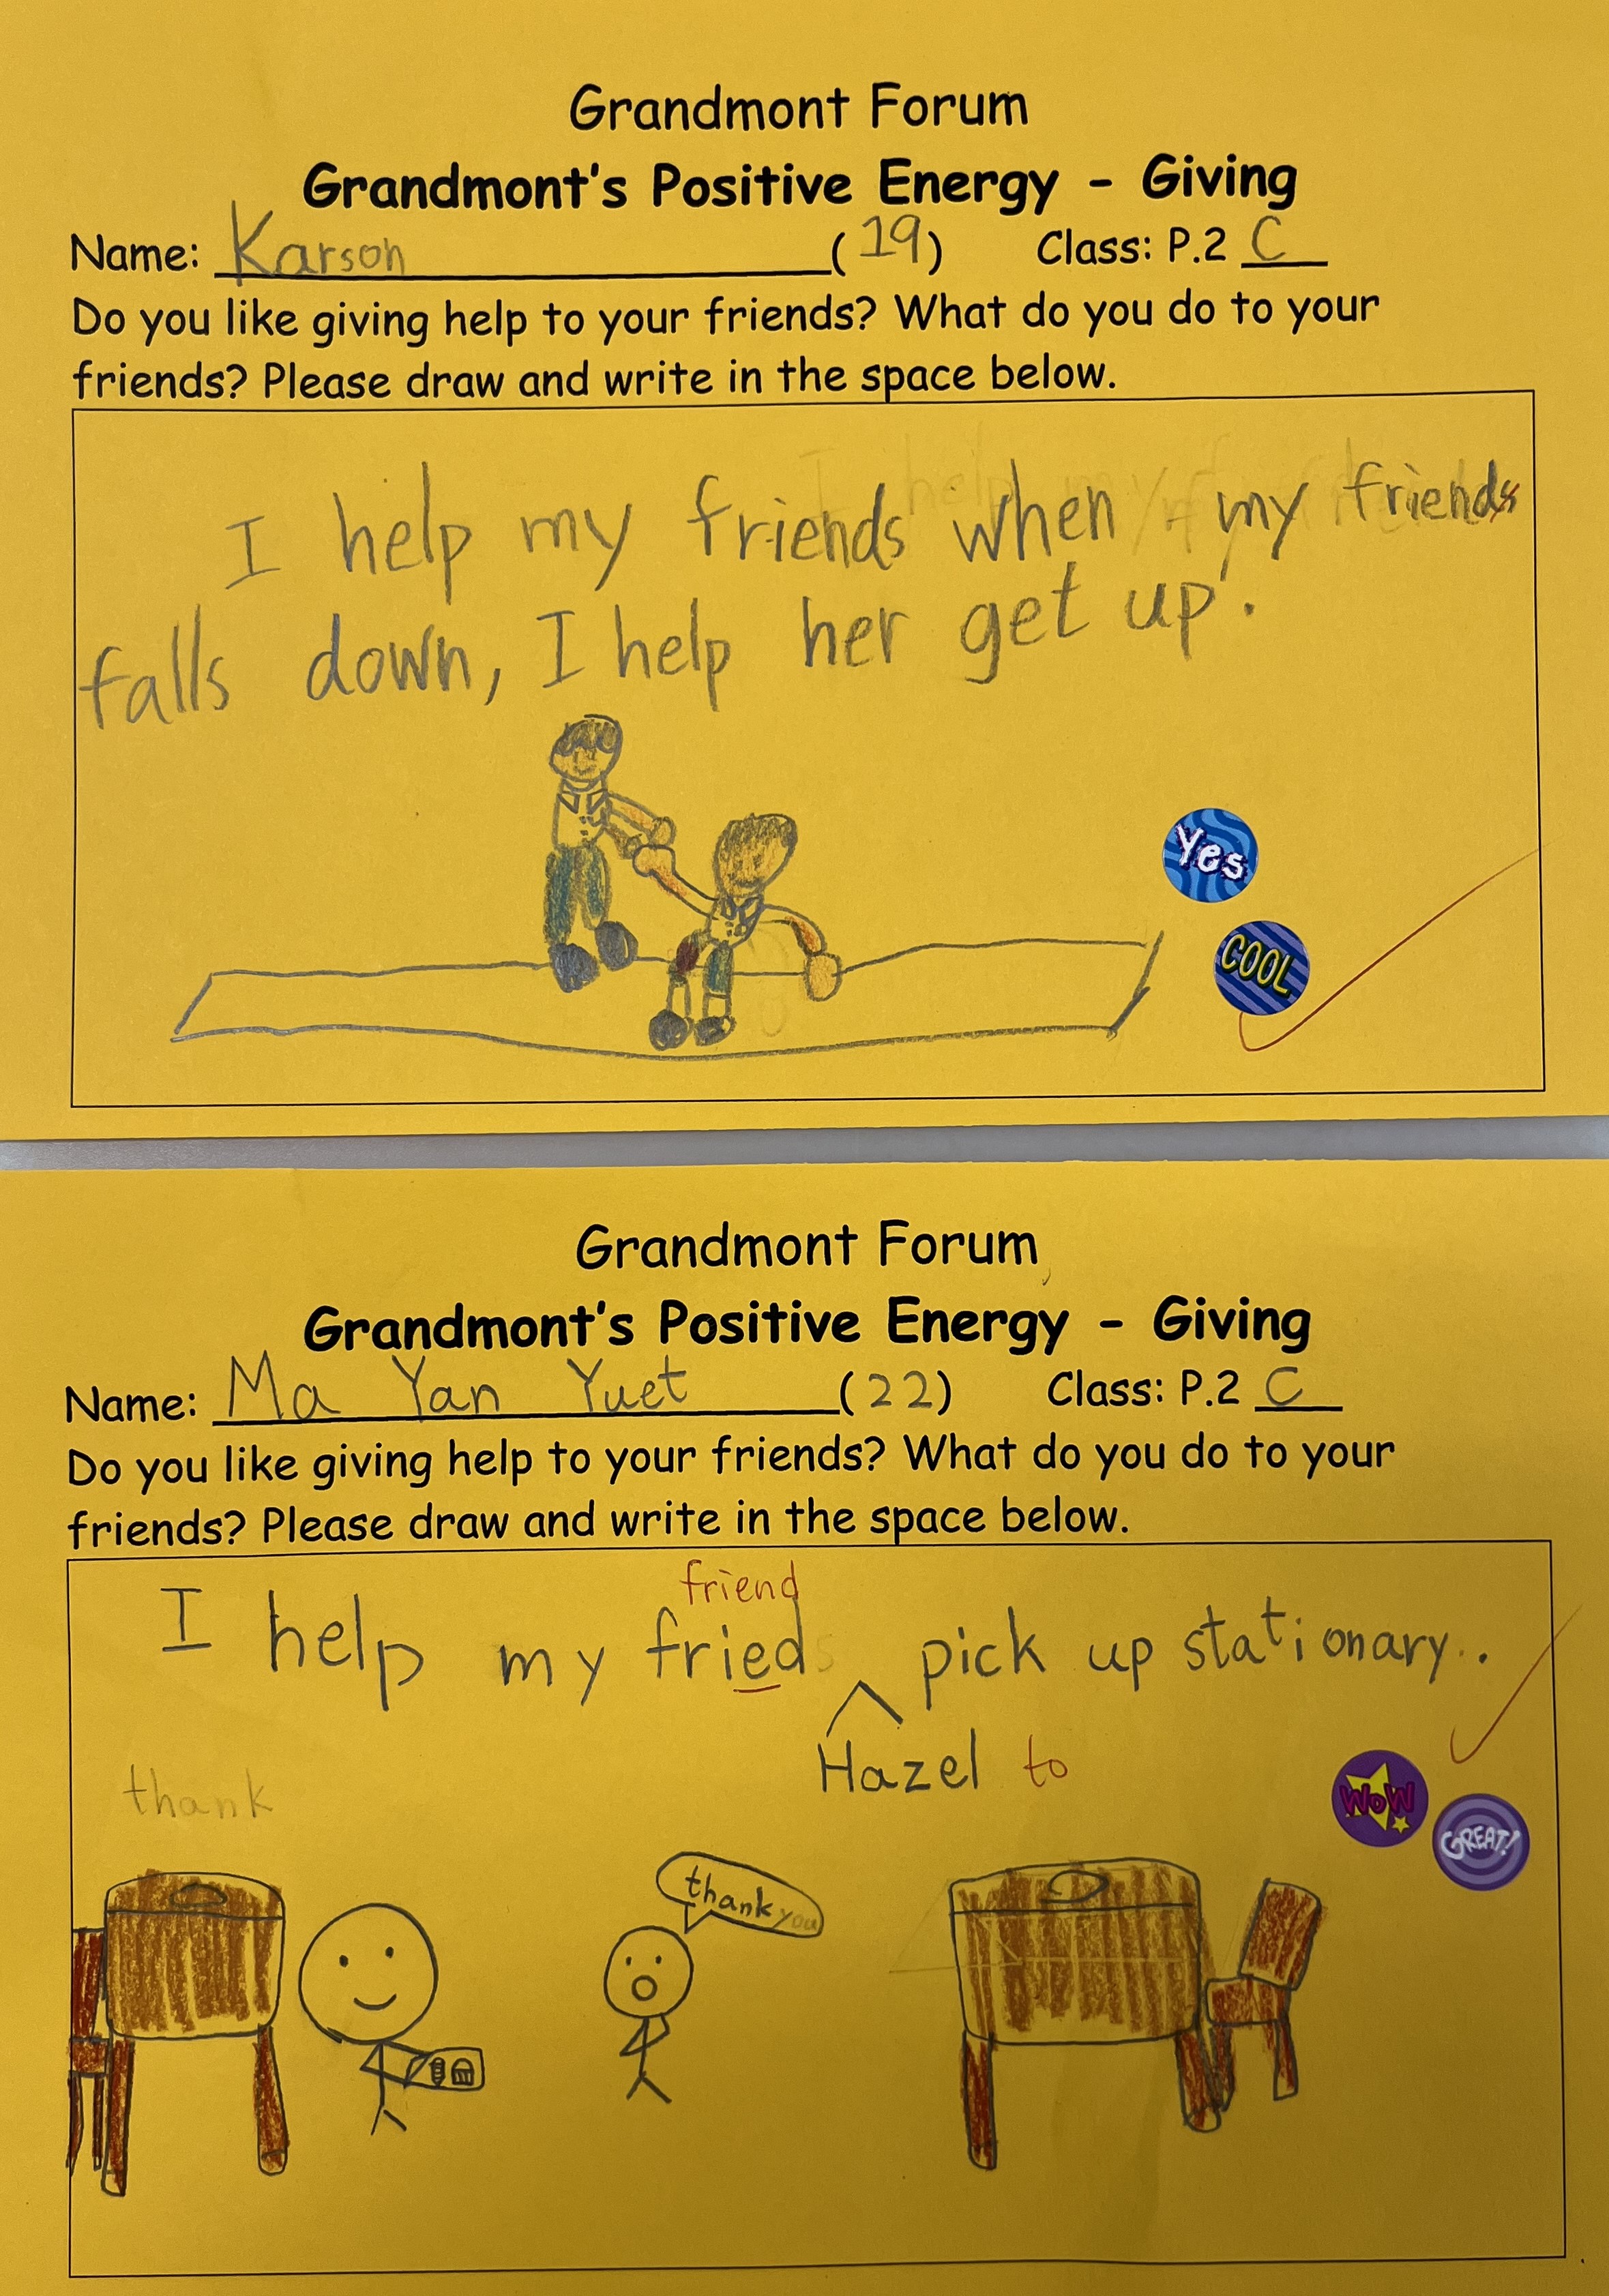 Grandmont Forum
Grandmont's Positive Energy - Giving
Name: Karson (19) Class: P.2 C
Do you like giving help to your friends? What do you do to your
friends? Please draw and write in the space below.
I help my friends when my friends
falls down, I help her get up.
Yes
COOL
Grandmont Forum
Grandmont's Positive Energy - Giving
Name: Ma Yan Yuet (22) Class: P.2 C
Do you like giving help to your friends? What do you do to your
friends? Please draw and write in the space below.
friend
I help my frieds pick up stationary..
Hazel to
thank
WOW
GREAT!
thank you